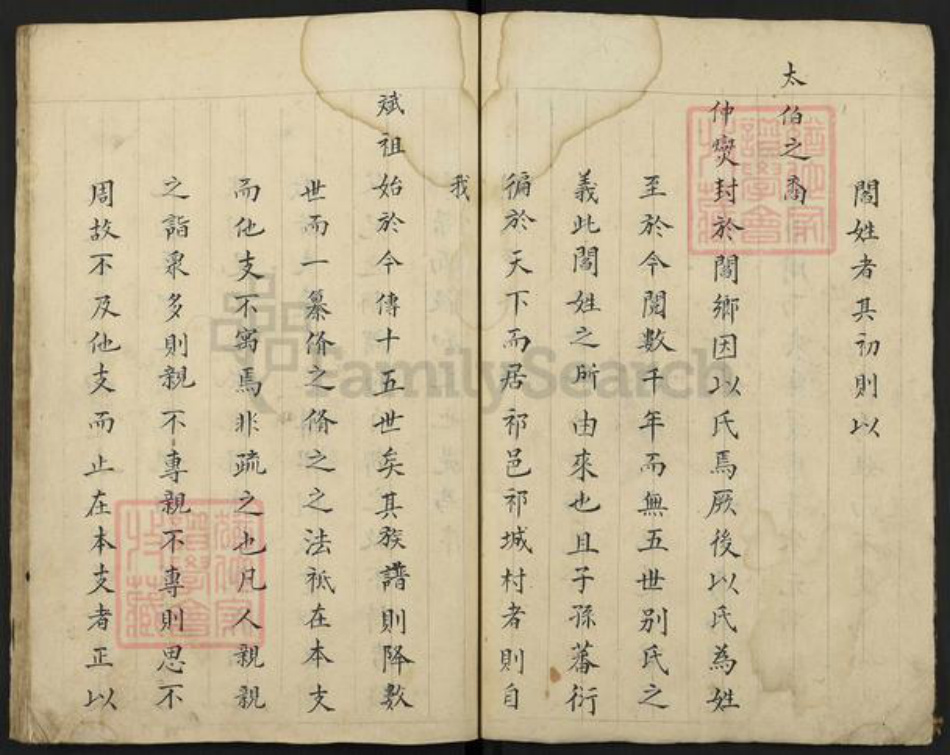 閻姓者其初則以
太伯之裔
仲奕封於閻鄉因以氏焉厥後以氏為姓
至於今閱數千年而無五世别氏之
義此閻姓之所由來也且子孫蕃衍
徧於天下而居祁邑祁城村者則自
我
斌祖始於今傳十五世矣其族譜則降數
世而一纂脩之脩之之法祗在本支
而他支不寫焉非疏之也凡人親親
之誼衆多則親不專親不專則思不
周故不及他支而止在本支者正以
FamilySearch